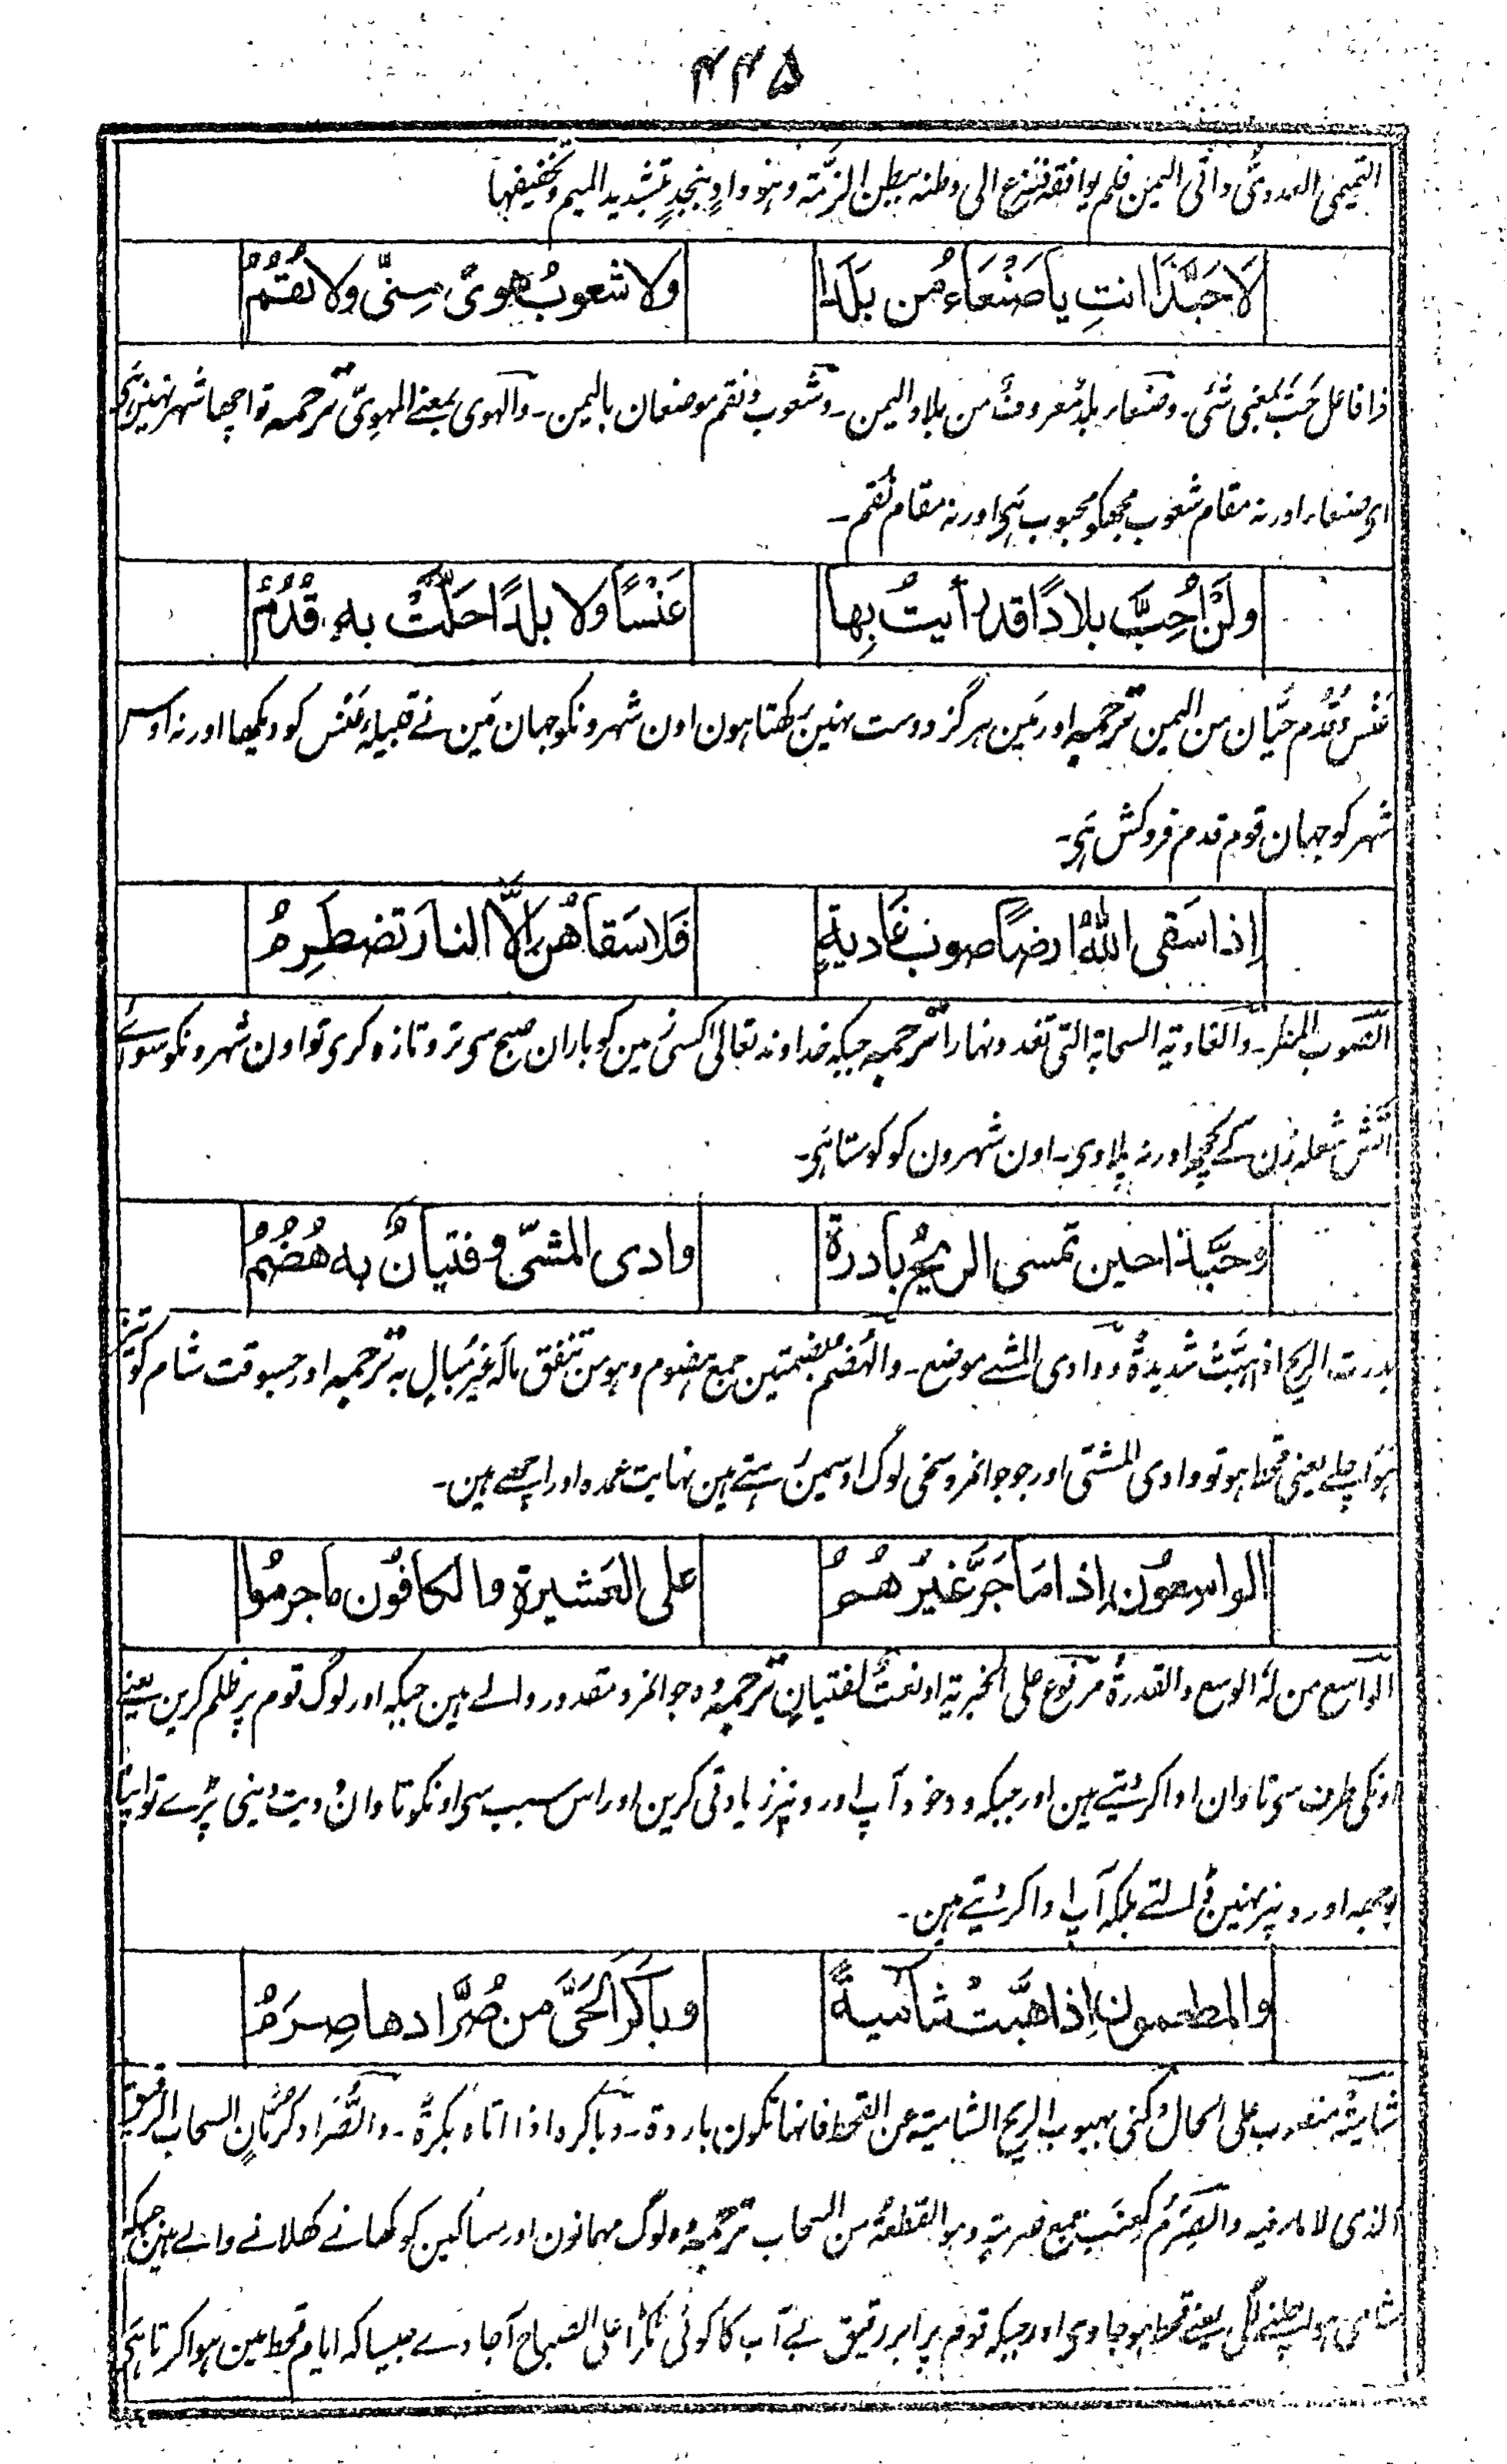 ۴۴۵
التمیمی العدویُّ واتی الیمن فلم یوافقه فنزع الی وطنه ببطن الرُّمّة وہو وادٍ بنجدٍ بتشدید المیم وتخفیفہا
لَا حَبَّذَا انتِ یا صَنْعَاءُ من بَلَدٍ
ولا شعوبُ هویً مِنّی ولا نُقُمُ
ذا فاعل حَبَّ بمعنی شئی۔ وصنعاء بلدٌ معروفٌ من بلاد الیمن۔ وشعوب ونقم موضعان بالیمن۔ والہوی بمعنے المہوِیّ ترجمہ تو اچھا شہر نہین ہی
ای صنعاء اور نہ مقام شعوب مجھکو محبوب ہی اور نہ مقام نُقم۔
ولَنْ اُحِبَّ بلادًا قد رأیتُ بِها
عَنْسًا ولا بلدًا حَلَّتْ بهٖ قُدُمُ
عَنْس وقُدُم حیَّان من الیمن ترجمہ اور مَین ہرگز دوست نہین رکھتا ہون اون شہرونکو جہان مَین نے قبیلہ عَنْس کو دیکھا اور نہ اوس
شہر کو جہان قوم قدم فروکش ہَی۔
اِذا سَقی اللهُ ارضًا صوبَ غَادیةٍ
فَلا سَقاهُنَّ اِلَّا النارَ تضطَرِمُ
الصَّوب المطر۔ والغادیة السحابة التی تغدو نہارا ترجمہ جبکہ خداوند تعالیٰ کسی زمین کو باران صبح سی تر و تازہ کری تو اون شہرونکو سوائے
آتش شعلہ زن کے کچھ اور نہ پلاوی۔ اون شہرون کو کوستا ہَی۔
وحَبَّذا حین تمسی الریحُ بادرةً
وادی المشیّ وفتیانٌ به هُضُمُ
بدرت الریح اذا ہبَّتْ شدیدةً ووادی المشے موضع۔ والہُضُم بضمتین جمع ہضوم وہو من ینفق مالَہ غیر مُبالٍ بہ ترجمہ اور جسوقت شام کو تیز
ہَوا چلے یعنی قحط ہو تو وادی المشیّ اور جو جوانمرد سخی لوگ اوسمین رہتے ہین نہایت عمدہ اور اچھے ہین۔
الواسِعُون اِذا مَا جَرَّ غیرُهُمُ
علی العَشیرةِ والکافُون ما جرمُوا
الواسع من لہٗ الوسع والقدرةُ مرفوع علی الخبریة او نعتٌ لفتیانٍ ترجمہ وہ جوانمرد مقدور والے ہین جبکہ اور لوگ قوم پر ظلم کرین یعنے
اونکی طرف سی تاوان ادا کر دیتے ہین اور جبکہ وہ خود آپ اورونپر زیادتی کرین اور اس سبب سی اونکو تاوان ودیت دینی پڑے تو اپنا
بوجھ اورونپر نہین ڈالتے بلکہ آپ ادا کر دیتے ہین۔
والمطعمون اِذا هبَّتْ شاٰمیةً
وباکَرَ الحَیَّ من صُرَّادها صِرَمُ
شامیةً منصوب علی الحال وکنی بہبوب الریح الشامیة عن القحط فانہا تکون باردة۔ وباکرہ اذا اتاہ بکرةً۔ والصُّرّاد کرُمّانٍ السحاب الرقیق
الذی لا ماء فیہ والصِّرَم کعِنَب جمع صرمةٍ وہو القطعة من السحاب ترجمہ وہ لوگ مہمانون اور مساکین کو کھانے کھلانے والے ہین جبکہ
شامی ہوا چلنے لگی یعنے قحط ہو جاوی اور جبکہ قوم پر ابر رقیق بے آب کا کوئی ٹکڑا علی الصباح آجاوے جیسا کہ ایام قحط مین ہوا کرتا ہَی